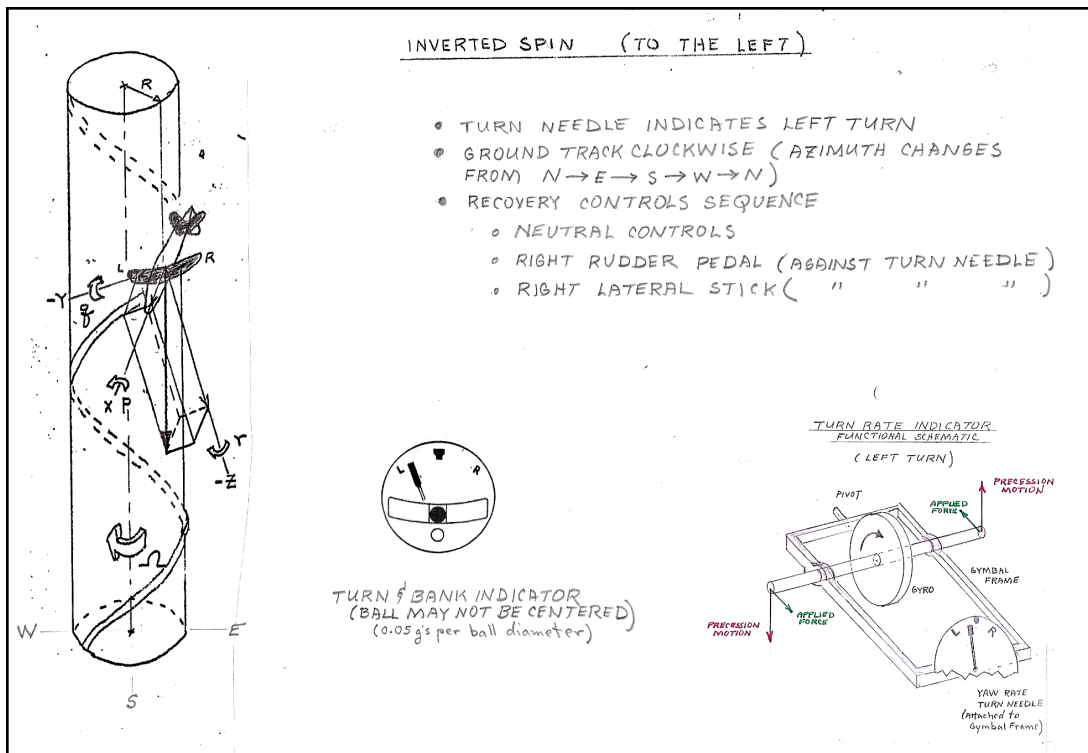 INVERTED SPIN (TO THE LEFT)
• TURN NEEDLE INDICATES LEFT TURN
• GROUND TRACK CLOCKWISE (AZIMUTH CHANGES
FROM N→E→S→W→N)
• RECOVERY CONTROLS SEQUENCE
o NEUTRAL CONTROLS
o RIGHT RUDDER PEDAL (AGAINST TURN NEEDLE)
o RIGHT LATERAL STICK ( " " " )
R
L
R
-Y
q
X P
r
-Z
Ω
W
E
S
L
R
TURN & BANK INDICATOR
(BALL MAY NOT BE CENTERED)
(0.05 g's per ball diameter)
(
TURN RATE INDICATOR
FUNCTIONAL SCHEMATIC
(LEFT TURN)
PRECESSION
MOTION
APPLIED
FORCE
PIVOT
GYMBAL
FRAME
GYRO
APPLIED
FORCE
PRECESSION
MOTION
L
R
YAW RATE
TURN NEEDLE
(Attached to
Gymbal Frame)